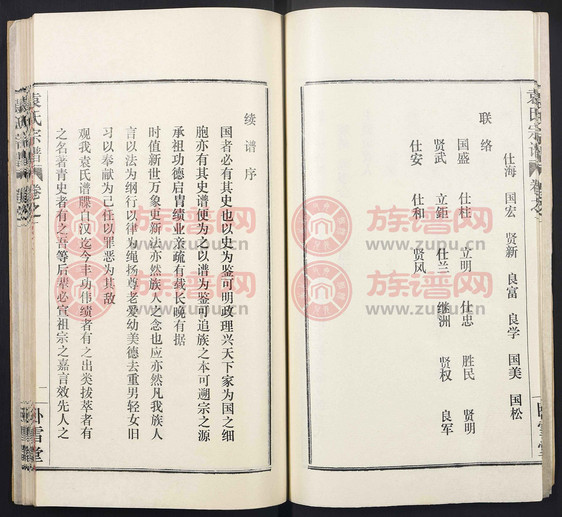 袁氏宗谱
仕海 国宏 贤新 良富 良学 国美 国松
联络
国盛 仕柱 立明 仕忠 胜民 贤明
贤武 立钜 仕兰 继洲 贤权 良军
仕安 仕和 贤风
续谱序
国者必有其史也以史为鉴可明政理兴天下家为国之细
胞亦有其史谱便为之以谱为鉴可追族之本可溯宗之源
承祖功德启胄绩业亲疏有线长晚有据
时值新世万象更新法亦然族人之念也应亦然凡我族人
言以法为纲行以律为绳扬尊老爱幼美德去重男轻女旧
习以奉献为己任以罪恶为其敌
观我袁氏谱牒自汉迄今丰功伟绩者有之出类拔萃者有
之名著青史者有之吾等后辈必宣祖宗之嘉言效先人之
袁氏宗谱
卷之一
一
卧雪堂
族谱网
www.zupu.cn
族谱网
www.zupu.cn
族谱网
www.zupu.cn
族谱网
www.zupu.cn